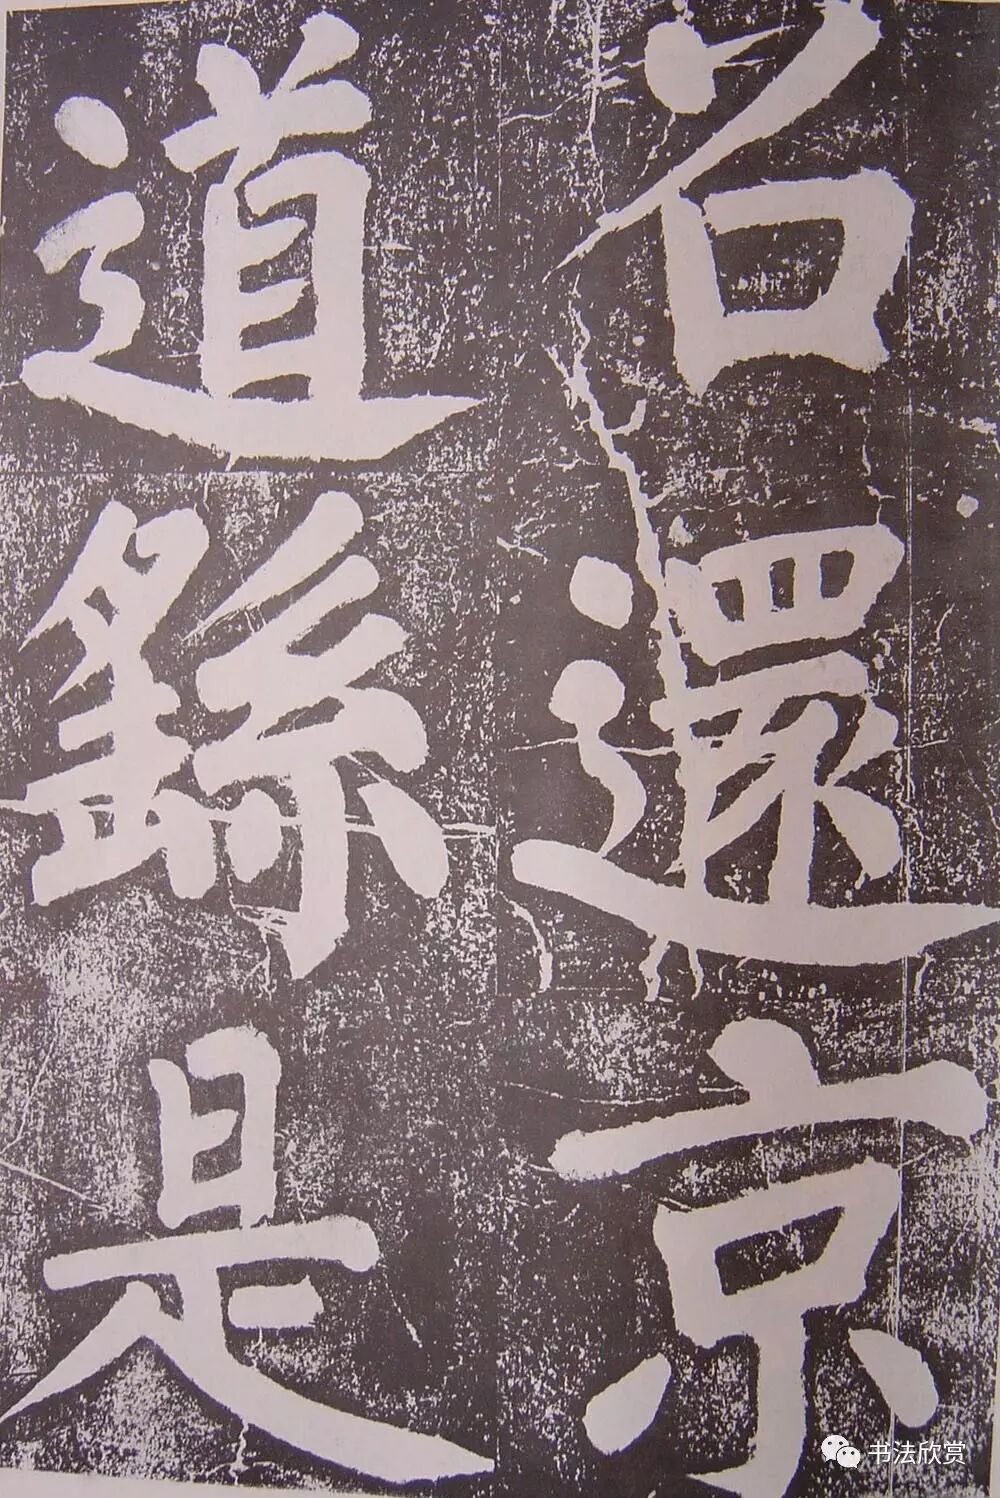 召還京
道繇是
书法欣赏